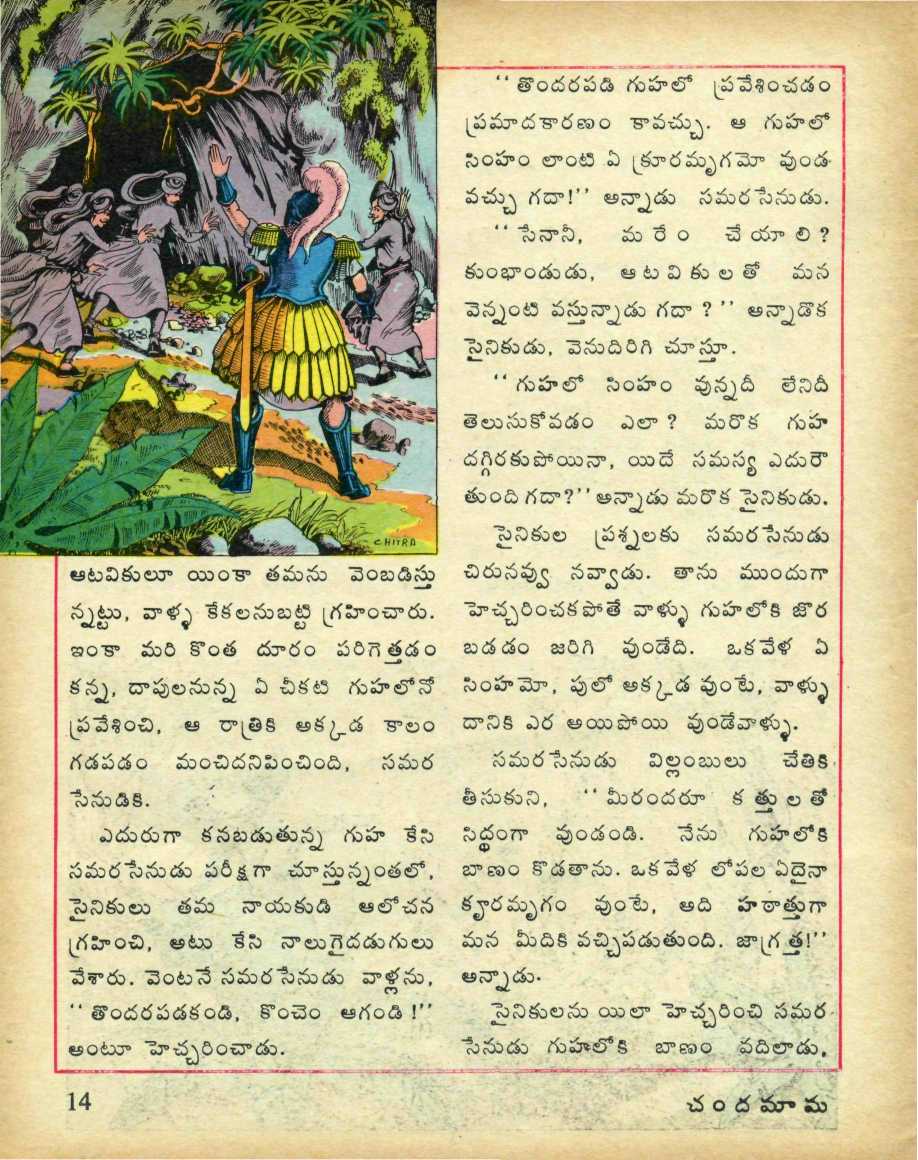 CHITRA
ఆటవికులూ యింకా తమను వెంబడిస్తు
న్నట్టు, వాళ్ళ కేకలనుబట్టి గ్రహించారు.
ఇంకా మరి కొంత దూరం పరిగెత్తడం
కన్న, దాపులనున్న ఏ చీకటి గుహలోనో
ప్రవేశించి, ఆ రాత్రికి అక్కడ కాలం
గడపడం మంచిదనిపించింది, సమర
సేనుడికి.
ఎదురుగా కనబడుతున్న గుహ కేసి
సమరసేనుడు పరీక్షగా చూస్తున్నంతలో,
సైనికులు తమ నాయకుడి ఆలోచన
గ్రహించి, అటు కేసి నాలుగైదడుగులు
వేశారు. వెంటనే సమరసేనుడు వాళ్లను,
‘‘తొందరపడకండి, కొంచెం ఆగండి!’’
అంటూ హెచ్చరించాడు.
‘‘తొందరపడి గుహలో ప్రవేశించడం
ప్రమాదకారణం కావచ్చు. ఆ గుహలో
సింహం లాంటి ఏ క్రూరమృగమో వుండ
వచ్చు గదా!’’ అన్నాడు సమరసేనుడు.
‘‘సేనానీ, మరేం చేయాలి?
కుంభాండుడు, ఆటవికులతో మన
వెన్నంటి వస్తున్నాడు గదా?’’ అన్నాడొక
సైనికుడు, వెనుదిరిగి చూస్తూ.
‘‘గుహలో సింహం వున్నదీ లేనిదీ
తెలుసుకోవడం ఎలా? మరొక గుహ
దగ్గిరకుపోయినా, యిదే సమస్య ఎదురౌ
తుంది గదా?’’ అన్నాడు మరొక సైనికుడు.
సైనికుల ప్రశ్నలకు సమరసేనుడు
చిరునవ్వు నవ్వాడు. తాను ముందుగా
హెచ్చరించకపోతే వాళ్ళు గుహలోకి జొర
బడడం జరిగి వుండేది. ఒకవేళ ఏ
సింహమో, పులో అక్కడ వుంటే, వాళ్ళు
దానికి ఎర అయిపోయి వుండేవాళ్ళు.
సమరసేనుడు విల్లంబులు చేతికి
తీసుకుని, ‘‘మీరందరూ కత్తులతో
సిద్ధంగా వుండండి. నేను గుహలోకి
బాణం కొడతాను. ఒకవేళ లోపల ఏదైనా
కౄరమృగం వుంటే, అది హఠాత్తుగా
మన మీదికి వచ్చిపడుతుంది. జాగ్రత్త!’’
అన్నాడు.
సైనికులను యిలా హెచ్చరించి సమర
సేనుడు గుహలోకి బాణం వదిలాడు.
14
చందమామ